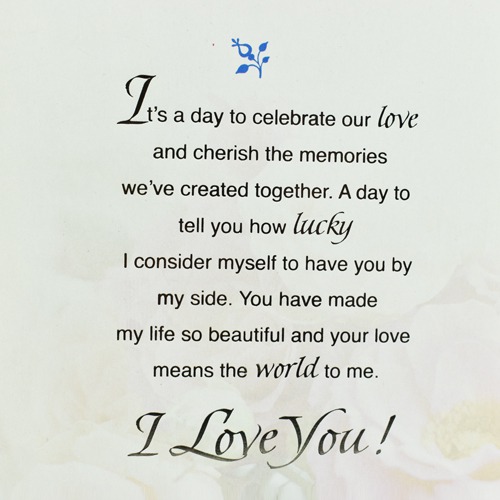 It's a day to celebrate our love
and cherish the memories
we've created together. A day to
tell you how lucky
I consider myself to have you by
my side. You have made
my life so beautiful and your love
means the world to me.
I Love You!